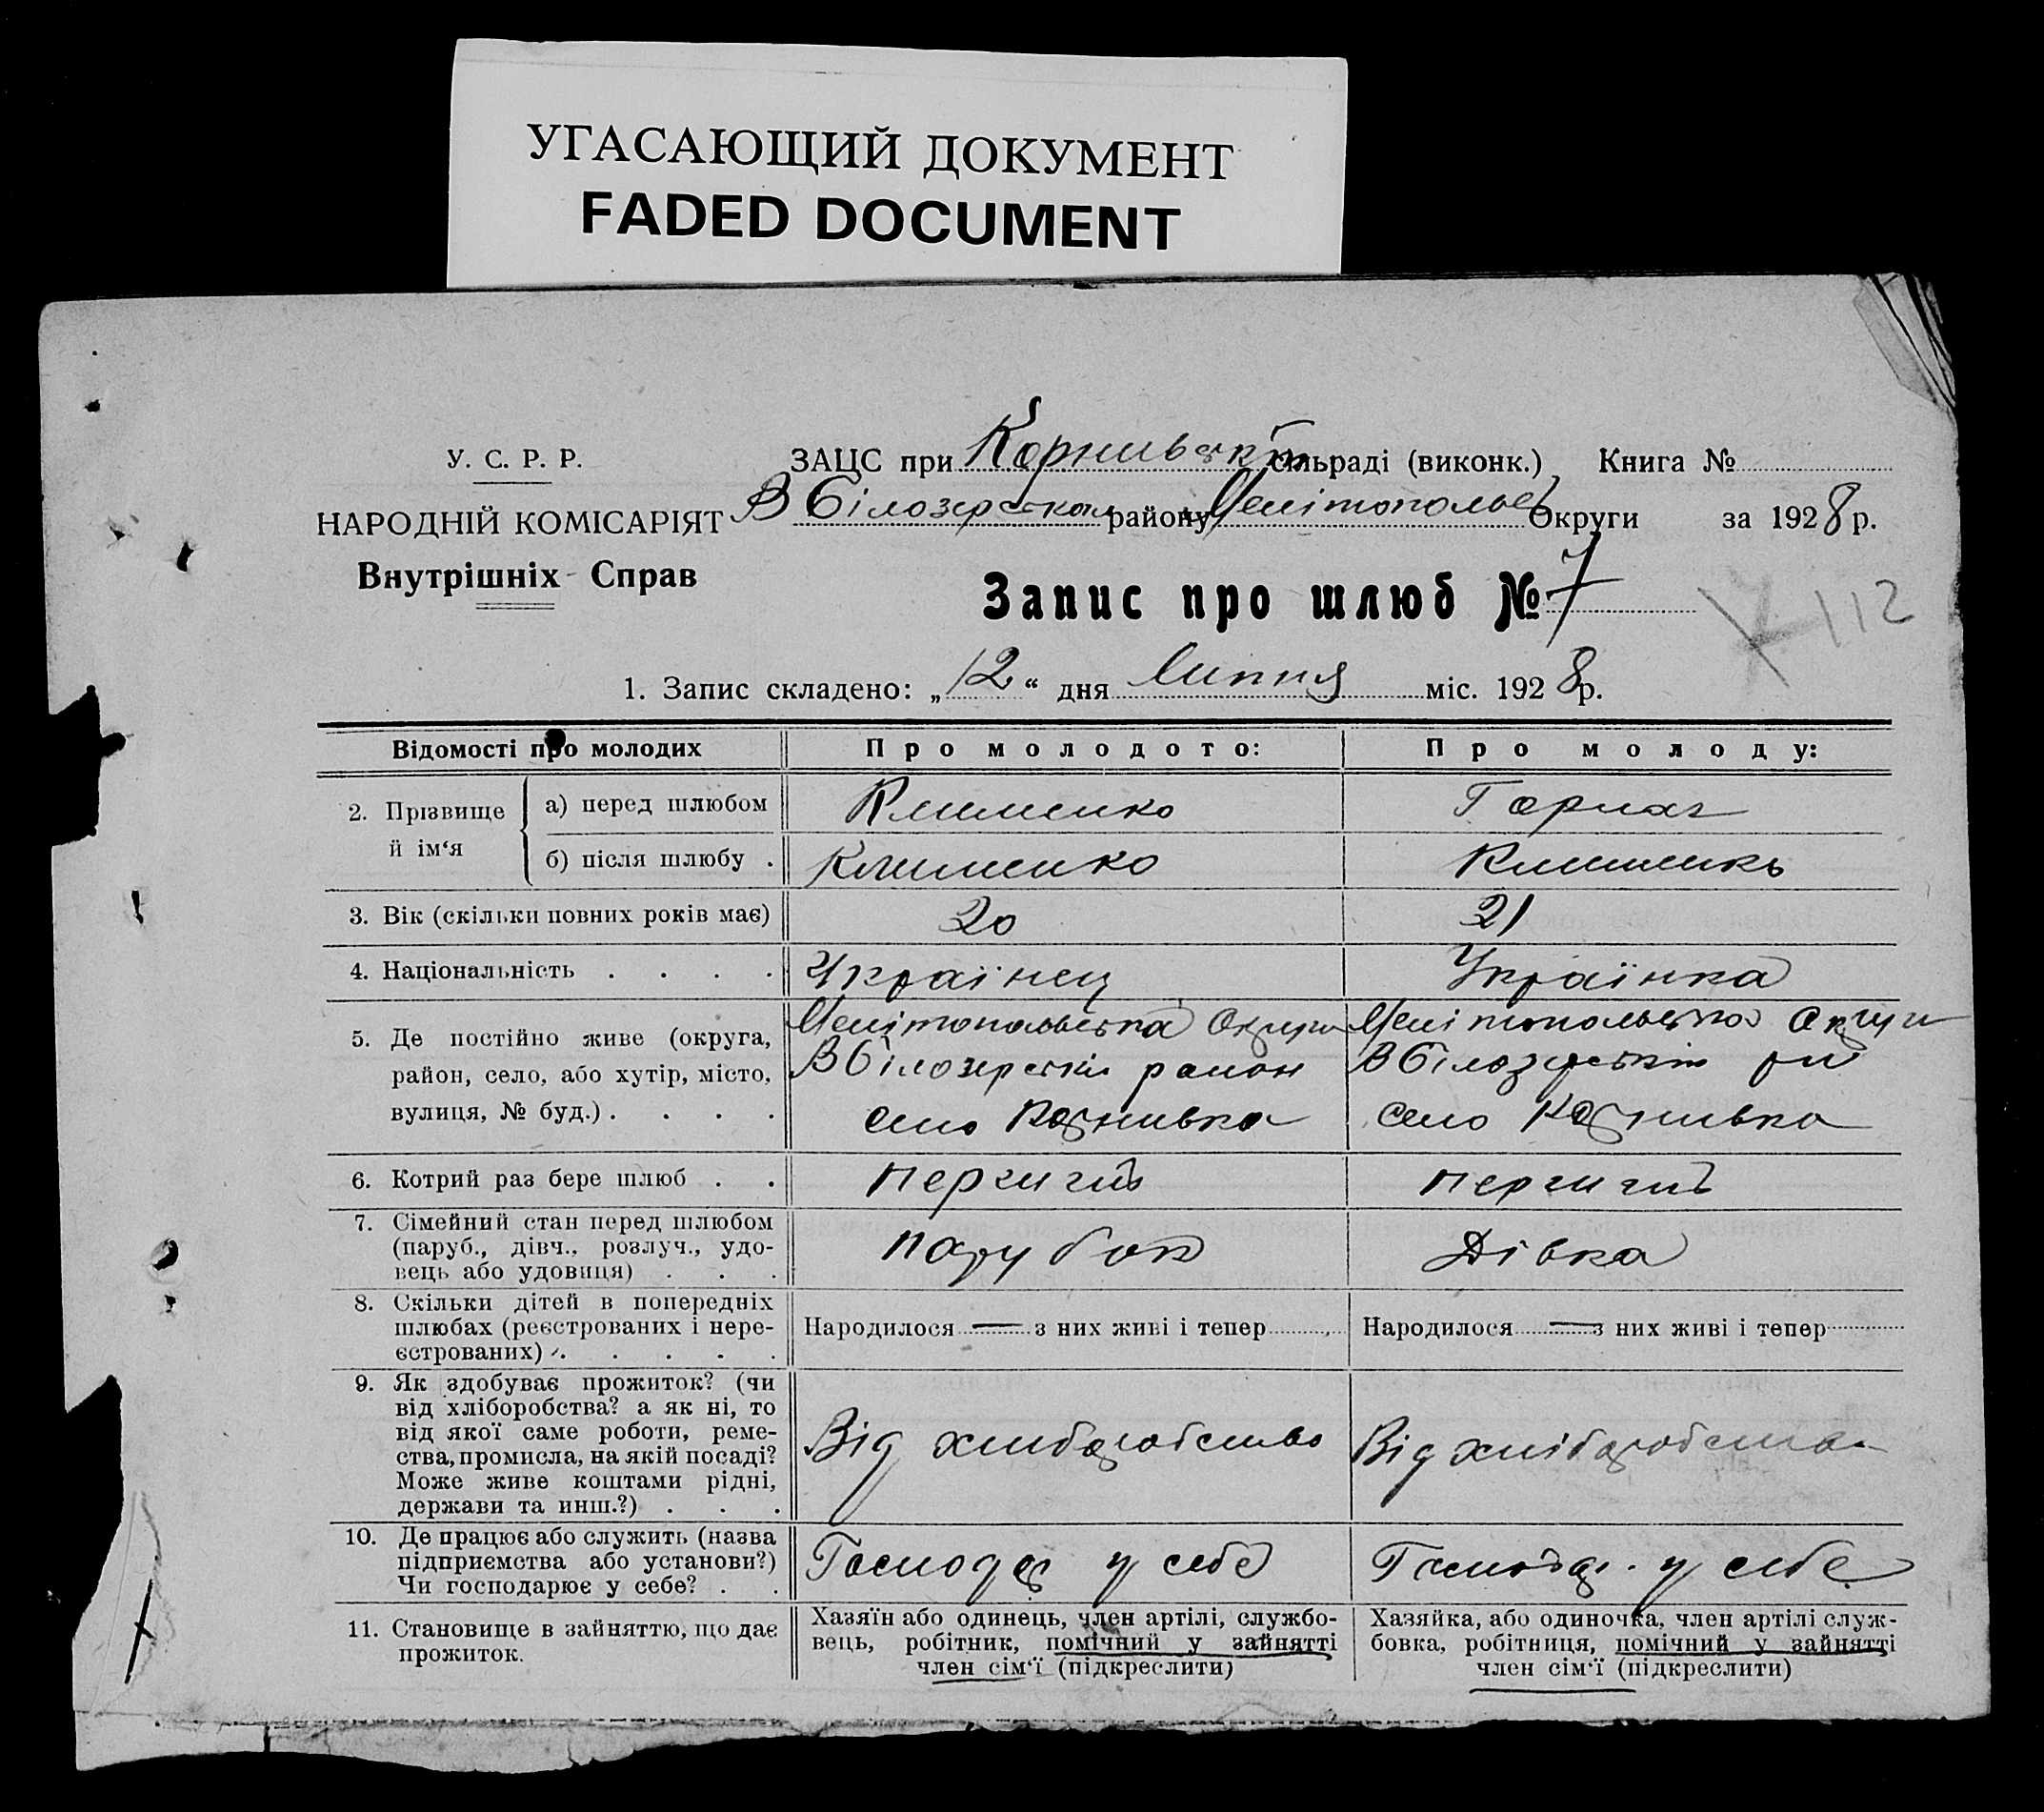 УГАСАЮЩИЙ ДОКУМЕНТ
FADED DOCUMENT
У. С. Р. Р.
НАРОДНІЙ КОМІСАРІЯТ
Внутрішніх Справ
ЗАЦС при сільраді (виконк.) Книга №
В Білозерском району Округи за 1928 р.
Запис про шлюб № 7
112
1. Запис складено: „12“ дня Липня міс. 1928 р.
Відомості про молодих
Про молодого:
Про молоду:
2. Прізвище й ім‘я
а) перед шлюбом
Клименко
Горпач
б) після шлюбу .
Клименко
Клименко
3. Вік (скільки повних років має)
20
21
4. Національність . . . .
Українец
Українка
5. Де постійно живе (округа,
район, село, або хутір, місто,
вулиця, № буд.) . . . .
Мелітопольська Округи
В Білозерські район
село Корнивка
Мелітопольська Округи
В Білозерскій
село Корнивка
6. Котрий раз бере шлюб . .
7. Сімейний стан перед шлюбом
(паруб., дівч., розлуч., удо-
вець або удовиця) . . .
парубок
Дівка
8. Скільки дітей в попередніх
шлюбах (реєстрованих і нере-
єстрованих) . . . . .
Народилося — з них живі і тепер
Народилося — з них живі і тепер
9. Як здобуває прожиток? (чи
від хліборобства? а як ні, то
від якої саме роботи, реме-
ства, промисла, на якій посаді?
Може живе коштами рідні,
держави та инш.?) . . .
Від хлиборобство
Від хліборобства
10. Де працює або служить (назва
підприємства або установи?)
Чи господарює у себе? . .
Господар у себе
Господар. у себе
11. Становище в зайняттю, що дає
прожиток.
Хазяїн або одинець, член артілі, службо-
вець, робітник, помічний у зайнятті
член сім‘ї (підкреслити)
Хазяйка, або одиночка, член артілі служ-
бовка, робітниця, помічний у зайнятті
член сім‘ї (підкреслити)